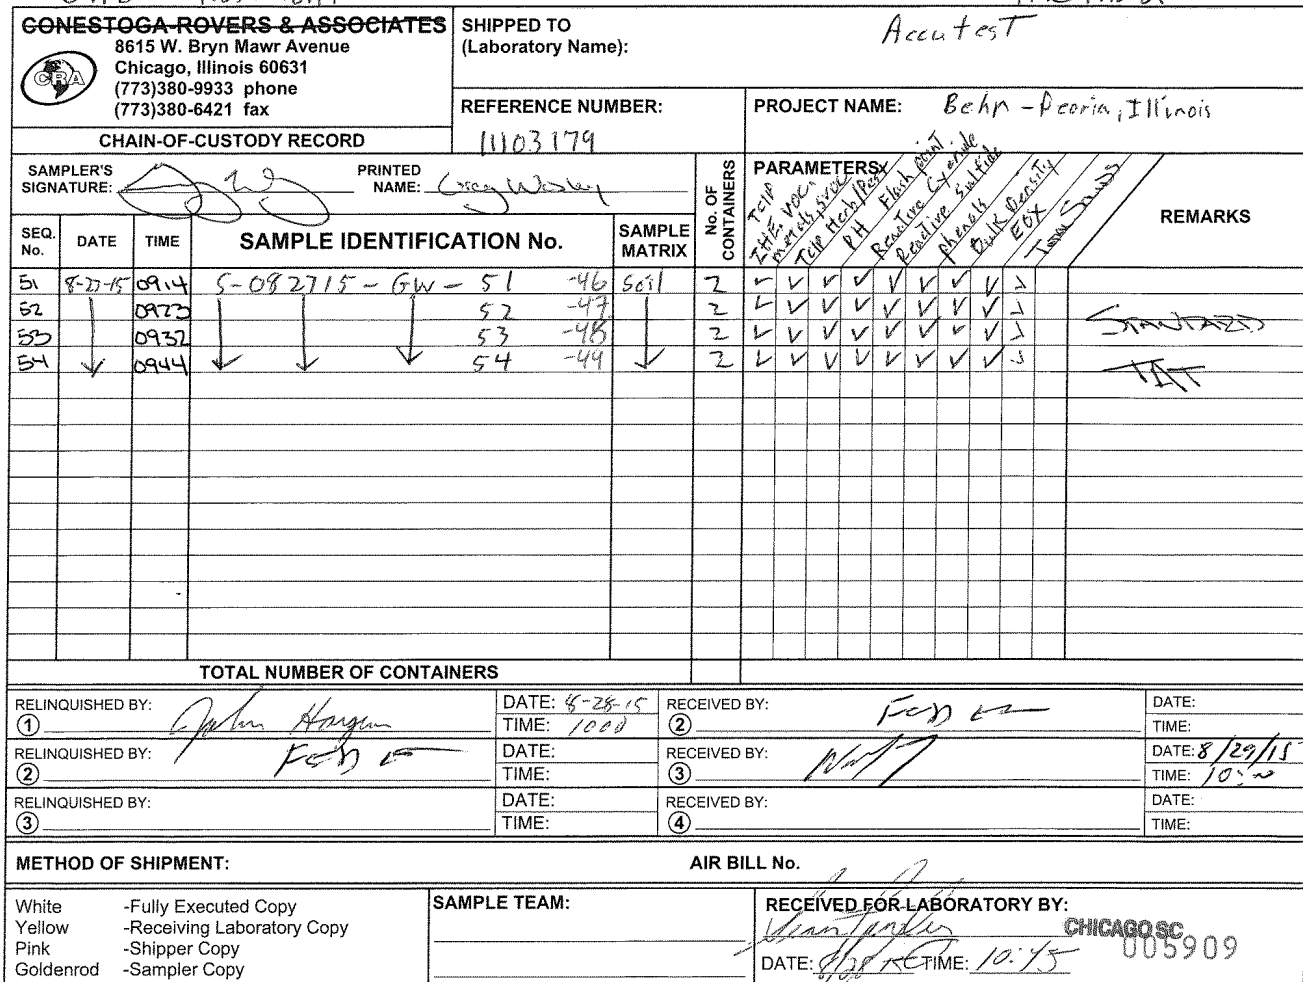 CONESTOGA-ROVERS & ASSOCIATES
8615 W. Bryn Mawr Avenue
Chicago, Illinois 60631
(773)380-9933 phone
(773)380-6421 fax
CRA
CHAIN-OF-CUSTODY RECORD
SHIPPED TO
(Laboratory Name):
Accutest
REFERENCE NUMBER:
11103179
PROJECT NAME: Behr - Peoria, Illinois
SAMPLER'S
SIGNATURE:
PRINTED
NAME: Greg
No. OF
CONTAINERS
PARAMETERS
TCLP
ZHE VOCs
metals, SVOC
TCLP Herb/Pest
PH Flash point
Reactive Cyanide
Reactive Sulfide
phenols
Bulk Density
EOX
REMARKS
SEQ.
No.
DATE
TIME
SAMPLE IDENTIFICATION No.
SAMPLE
MATRIX
51 8-27-15 0914 S-082715-GW-51 -46 Soil 2 ✓ ✓ ✓ ✓ ✓ ✓ ✓ ✓ ✓
52 0923 52 -47 2 ✓ ✓ ✓ ✓ ✓ ✓ ✓ ✓ ✓
53 0932 53 -48 2 ✓ ✓ ✓ ✓ ✓ ✓ ✓ ✓ ✓
54 0944 54 -49 2 ✓ ✓ ✓ ✓ ✓ ✓ ✓ ✓ ✓
STANDARD
TAT
TOTAL NUMBER OF CONTAINERS
RELINQUISHED BY:
① John
DATE: 8-28-15
TIME: 1000
RECEIVED BY:
② FedEx
DATE:
TIME:
RELINQUISHED BY:
② FedEx
DATE:
TIME:
RECEIVED BY:
③
DATE: 8/29/15
TIME: 10:00
RELINQUISHED BY:
③
DATE:
TIME:
RECEIVED BY:
④
DATE:
TIME:
METHOD OF SHIPMENT:
AIR BILL No.
White -Fully Executed Copy
Yellow -Receiving Laboratory Copy
Pink -Shipper Copy
Goldenrod -Sampler Copy
SAMPLE TEAM:
RECEIVED FOR LABORATORY BY:
DATE: 8/28 TIME: 10:45
CHICAGO SC
005909